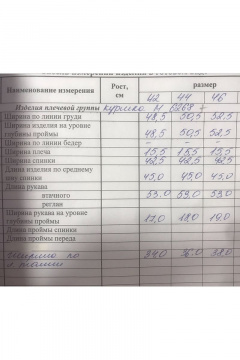 Наименование измерения Рост, см размер
42 44 46
Изделия плечевой группы куртка М 6268
Ширина по линии груди 48,5 50,5 52,5
Ширина изделия на уровне
глубины проймы 48,5 50,5 52,5
Ширина по линии бедер - - -
Ширина плеча 15,5 15,5 15,5
Ширина спинки 42,5 42,5 42,5
Длина изделия по среднему
шву спинки 45,0 45,0 45,0
Длина рукава
втачного 53.0 53,0 53.0
реглан
Ширина рукава на уровне
глубины проймы 17,0 18,0 19,0
Длина проймы спинки
Длина проймы переда
Ширина по
л. талии 34,0 36,0 38,0